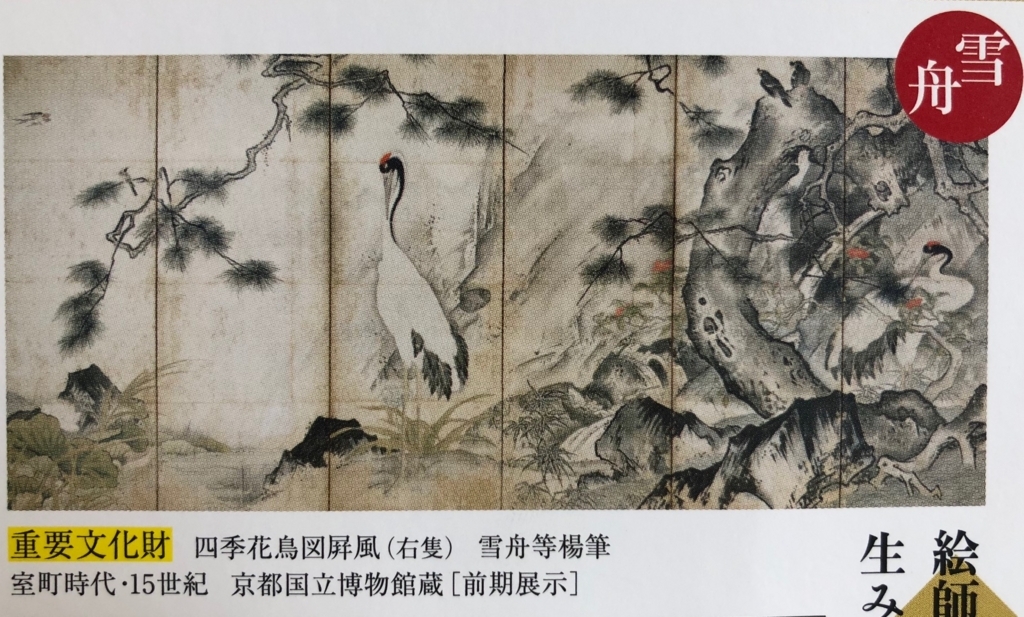 雪舟
重要文化財 四季花鳥図屛風(右隻) 雪舟等楊筆
室町時代・15世紀 京都国立博物館蔵[前期展示]
絵師
生み